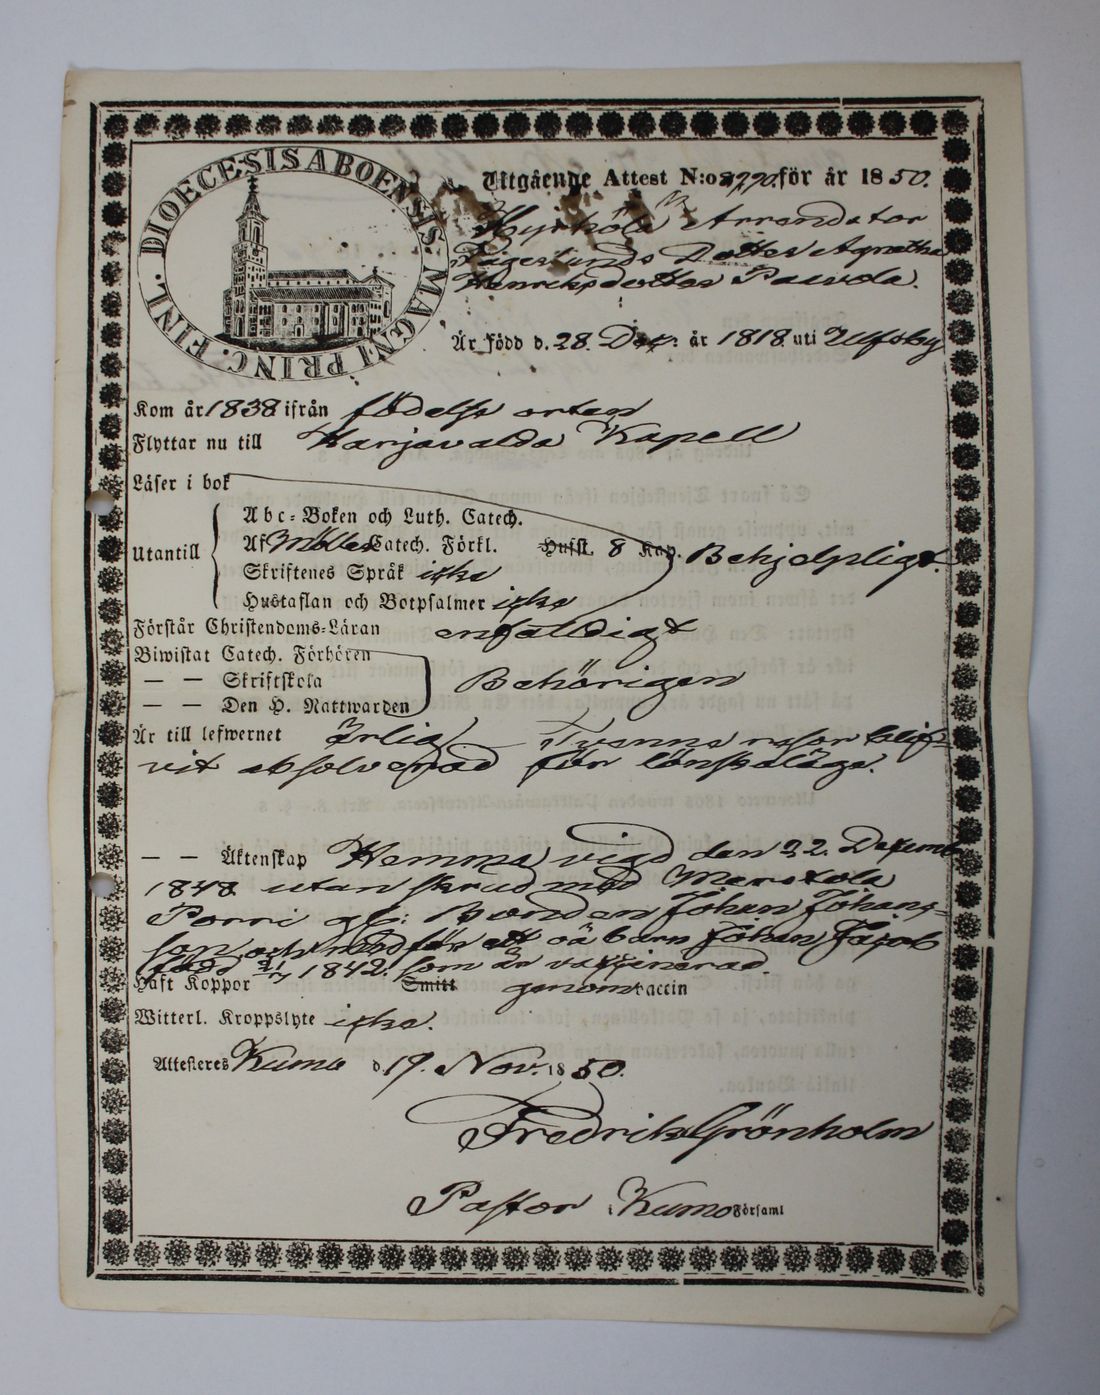 DIOECESIS ABOENSIS MAGNI PRINC. FINL.
Utgående Attest N:o för år 1850.
Arrendator
Dotter Agnetha
Henriksdotter
Är född d. 28. Dec. år 1818 uti Ulfsby
Kom år 1838 ifrån födelse orten
Flyttar nu till Harjavalda Kapell
Läser i bok
Abc-Boken och Luth. Catech.
Utantill Af Möllers Catech. Förkl. Hufst. 8 Kap. Behjelpligt.
Skriftenes Språk icke
Hustaflan och Botpsalmer icke
Förstår Christendoms-Läran enfaldigt
Biwistat Catech. Förhören
— — Skriftskola Behörigen
— — Den H. Nattwarden
Är till lefwernet Ärlig. Tvenne resor blif-
vit absolverad för lönskaläge.
— — Äktenskap Hemma vigd den 22. December
1848 utan skrud med Merstola
Porri gl: Bonden Johan Johans-
son och medför ett oä barn Johan Jacob
född 1842. som är vaccinerad.
Haft Koppor Smitt genom vaccin
Witterl. Kroppslyte icke.
Attesteres Kumo d. 19. Nov. 1850.
Fredrik Grönholm
Pastor i Kumo Församl